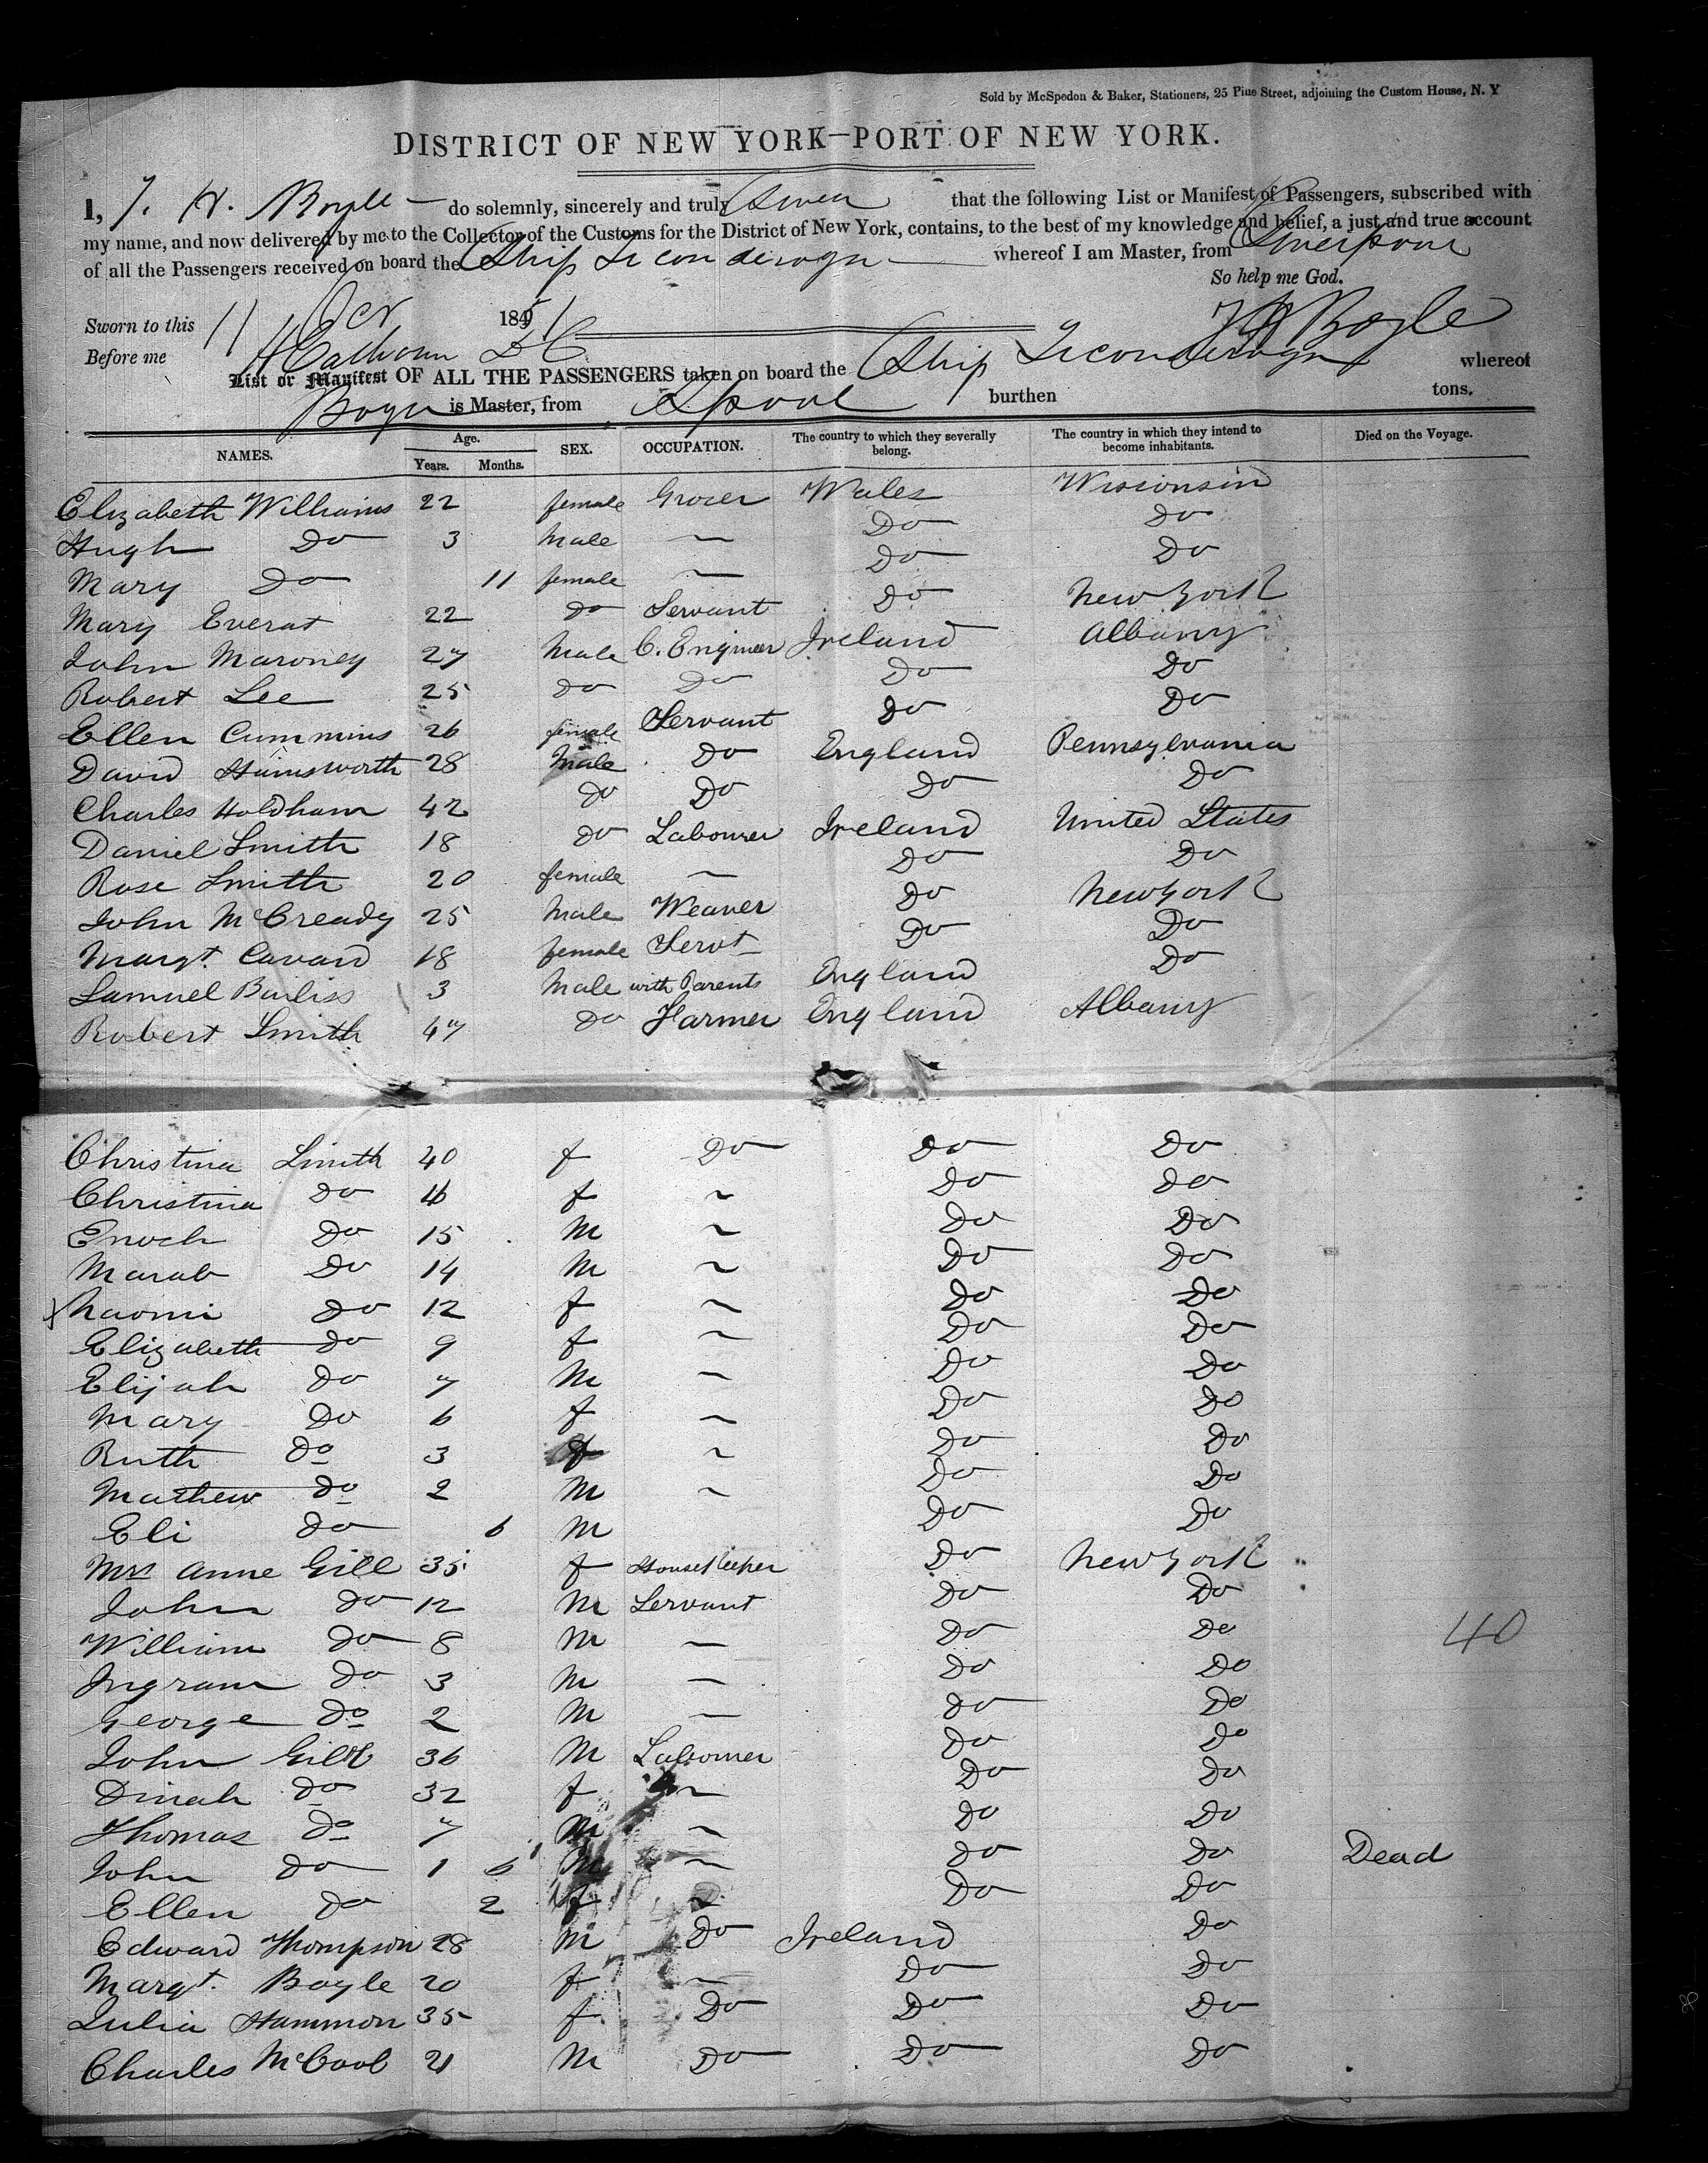 Sold by McSpedon & Baker, Stationers, 25 Pine Street, adjoining the Custom House, N. Y
DISTRICT OF NEW YORK—PORT OF NEW YORK.
I, T. H. Boyle do solemnly, sincerely and truly Swear that the following List or Manifest of Passengers, subscribed with
my name, and now delivered by me to the Collector of the Customs for the District of New York, contains, to the best of my knowledge and belief, a just and true account
of all the Passengers received on board the Ship Ticonderoga whereof I am Master, from Liverpool
So help me God.
Sworn to this 11 Oct 1851 T H Boyle
Before me Calhoun D C
List or Manifest OF ALL THE PASSENGERS taken on board the Ship Ticonderoga whereof
Boyle is Master, from Lpool burthen tons.
NAMES. Age. Years. Months. SEX. OCCUPATION. The country to which they severally belong. The country in which they intend to become inhabitants. Died on the Voyage.
Elizabeth Williams 22 female Grocer Wales Wisconsin
Hugh Do 3 Male — Do Do
Mary Do 11 female — Do Do
Mary Everat 22 do Servant Do New York
John Maroney 27 Male C. Engineer Ireland Albany
Robert Lee 25 do Do Do Do
Ellen Cummins 26 female Servant Do Do
David Hainsworth 28 Male Do England Pennsylvania
Charles Holdham 42 do Do Do Do
Daniel Smith 18 do Labourer Ireland United States
Rose Smith 20 female — Do Do
John McCready 25 Male Weaver Do New York
Margt. Cavard 18 female Servt Do Do
Samuel Bailiss 3 Male with Parents England Do
Robert Smith 47 do Farmer England Albany
Christina Smith 40 f Do Do Do
Christina Do f ~ Do Do
Enoch Do 15 M ~ Do Do
Marab Do 14 M ~ Do Do
x Naomi Do 12 f ~ Do Do
Elizabeth do 9 f ~ Do Do
Elijah do 7 M ~ Do Do
Mary Do 6 f ~ Do Do
Ruth do 3 f ~ Do Do
Mathew do 2 M ~ Do Do
Eli do 6 M Do Do
Mrs Anne Gill 35 f House Keeper Do New York
John do 12 M Servant Do Do
William do 8 M — Do Do
40
Ingram do 3 M — Do Do
George do 2 M — Do Do
John Gill 36 M Labourer Do Do
Dinah do 32 f ~ Do Do
Thomas do 7 M ~ Do Do
John do 1 6 M ~ Do Do Dead
Ellen do 2 f ~ Do Do
Edward Thompson 28 M Do Ireland Do
Margt. Boyle 20 f ~ Do Do
Julia Hammon 35 f Do Do Do
Charles McCool 21 M Do Do Do